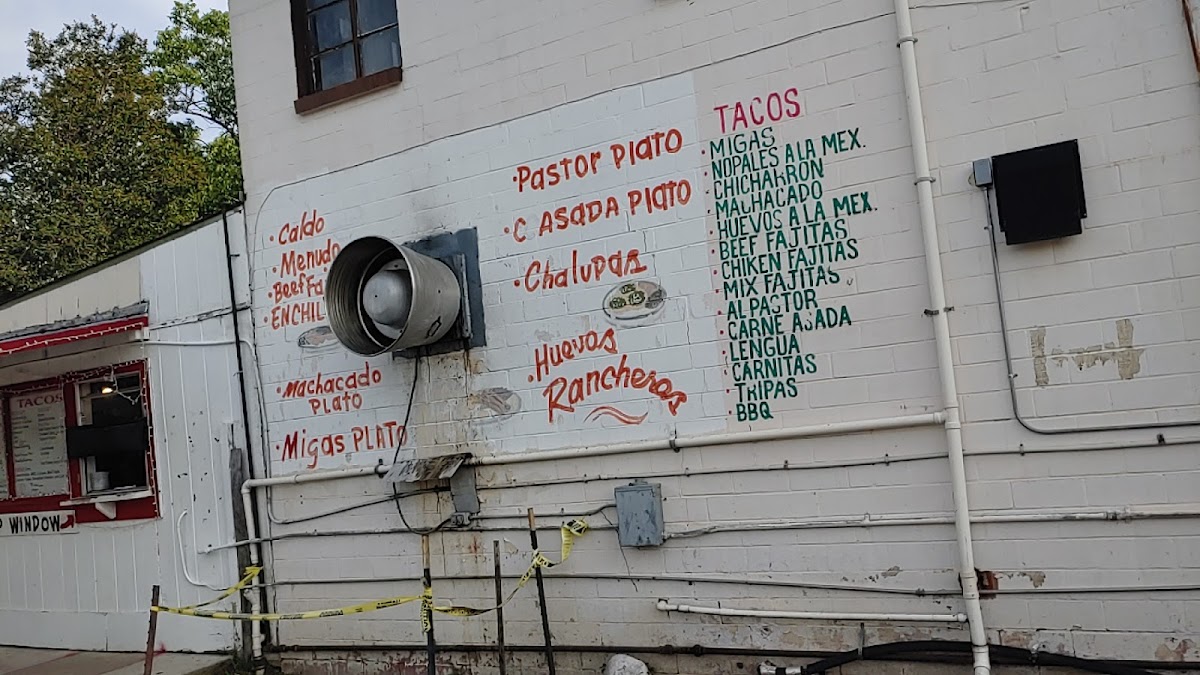 • Caldo
• Menudo
• Beef Fa
• ENCHIL
• Machacado
PLATO
• Migas PLATO
• Pastor Plato
• C ASADA PlATO
• Chalupas
• Huevos
Rancheros
TACOS
• MIGAS
• NOPALES A LA MEX.
• CHICHARRON
• MACHACADO
• HUEVOS A LA MEX.
• BEEF FAJITAS
• CHIKEN FAJITAS
• MIX FAJITAS
• AL PASTOR
• CARNE ASADA
• LENGUA
• CARNITAS
• TRIPAS
• BBQ
TACOS
WINDOW